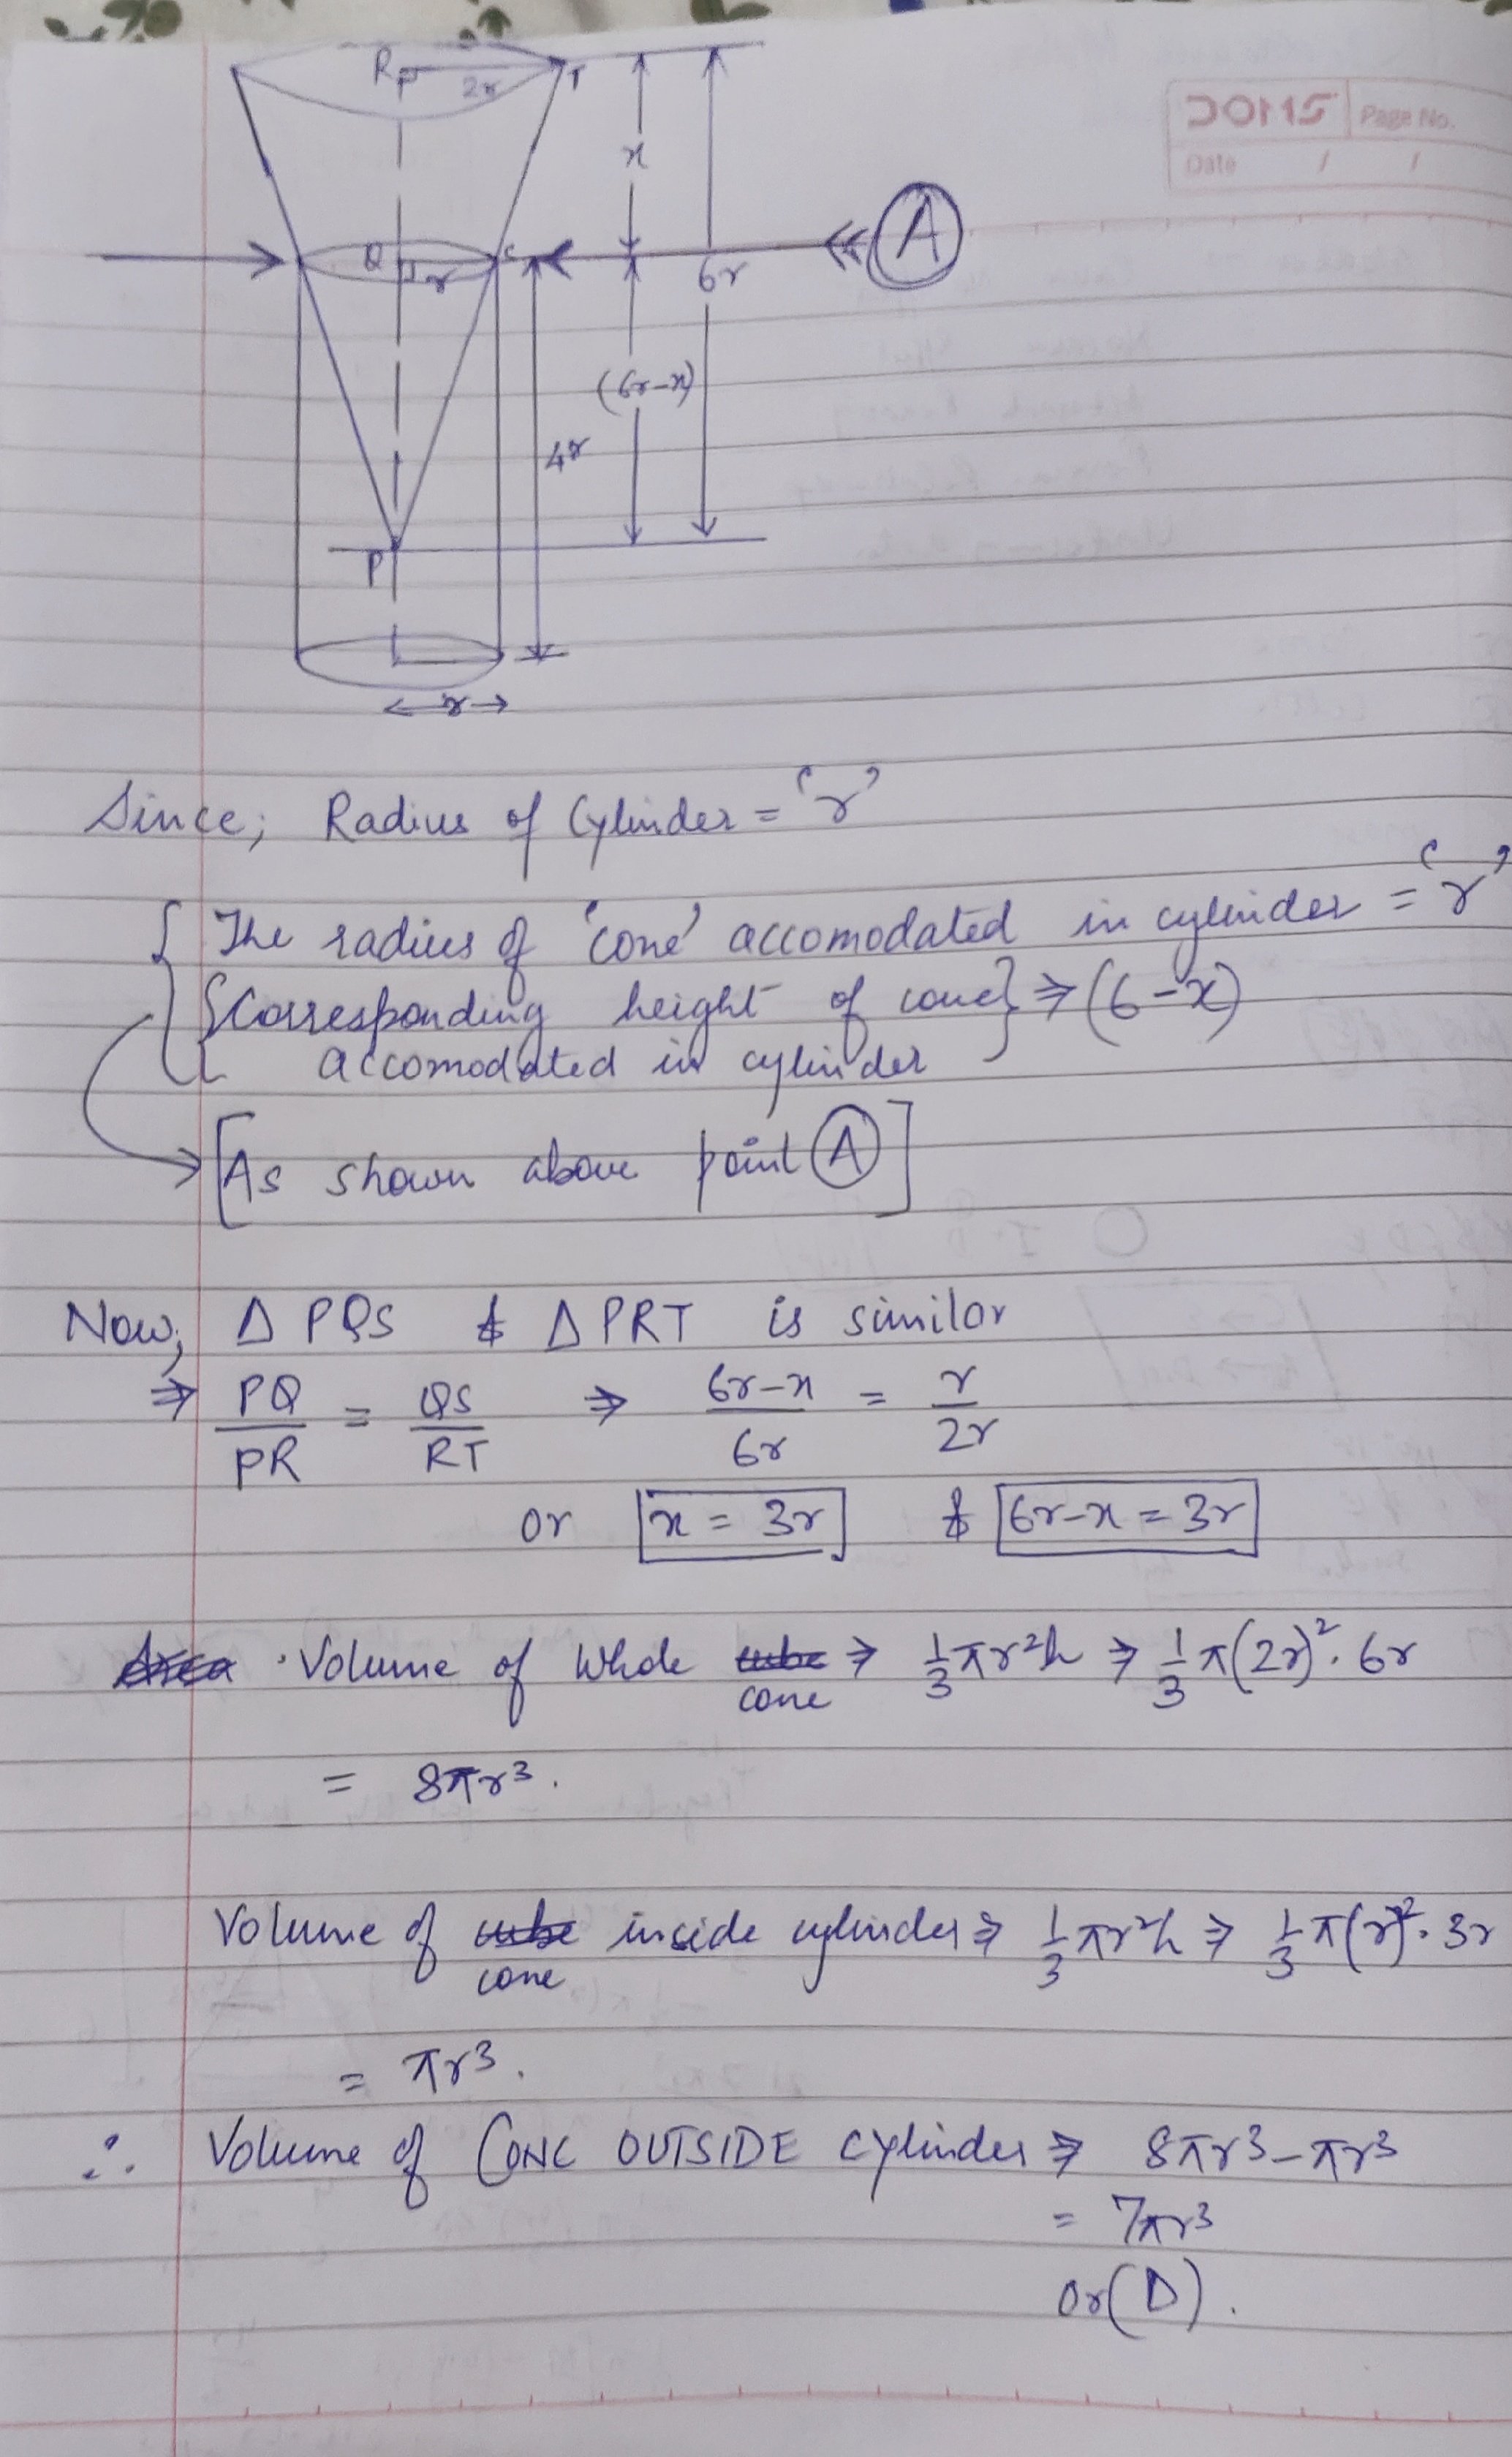 DOMS Page No.
Date / /
R 2r T
x
A
Q r S
6r
(6r-x)
4r
P
r
Since; Radius of Cylinder = 'r'
The radius of 'cone' accomodated in cylinder = 'r'
{Corresponding height of cone} ⇒ (6-x)
accomodated in cylinder
[As shown above point (A)]
Now; Δ PQS & Δ PRT is similar
⇒ PQ/PR = QS/RT ⇒ 6r-x/6r = r/2r
or x = 3r & 6r-x = 3r
Area · Volume of Whole cube ⇒ 1/3 πr²h ⇒ 1/3 π(2r)². 6r
cone
= 8πr³.
Volume of cube inside cylinder ⇒ 1/3 πr²h ⇒ 1/3 π(r)². 3r
cone
= πr³.
∴ Volume of CONE OUTSIDE Cylinder ⇒ 8πr³-πr³
= 7πr³
or (D).